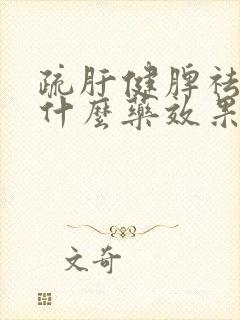 疏肝健脾祛
什麼藥效果
文奇